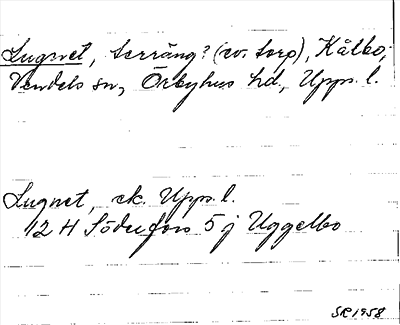 Lugnet, terräng? (ev. torp), Kålbo,
Vendels sn, Örbyhus hd, Upps. l.
Lugnet, ek. Upps. l.
12 H Söderfors 5 j Uggelbo
SR 1958